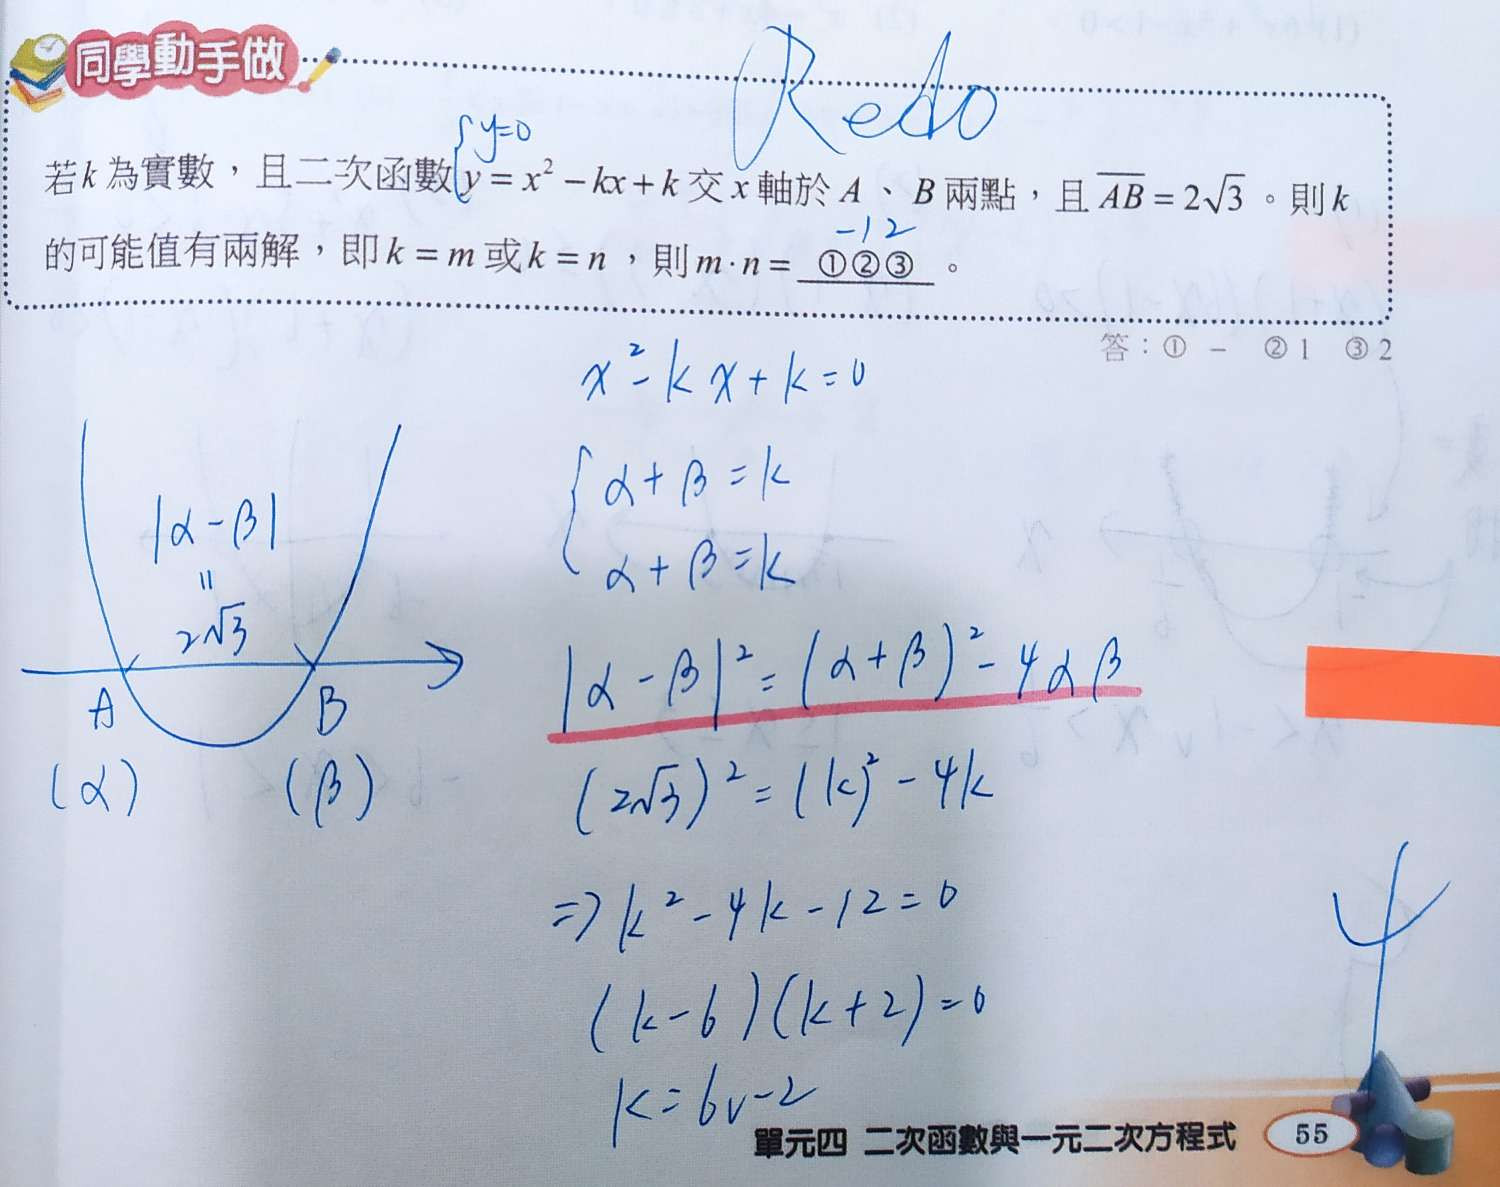 同學動手做
Redo
{y=0
若k為實數，且二次函數y = x² − kx + k交x軸於A、B兩點，且AB̅ = 2√3。則k
-12
的可能值有兩解，即k = m或k = n，則m·n = ①②③。
答：① − ② 1 ③ 2
x² - kx + k = 0
α + β = k
α + β = k
|α - β|
=
2√3
A B
(α) (β)
|α - β|² = (α + β)² - 4αβ
(2√3)² = (k)² - 4k
⇒ k² - 4k - 12 = 0
(k - 6)(k + 2) = 0
k = 6 v -2
單元四 二次函數與一元二次方程式 55